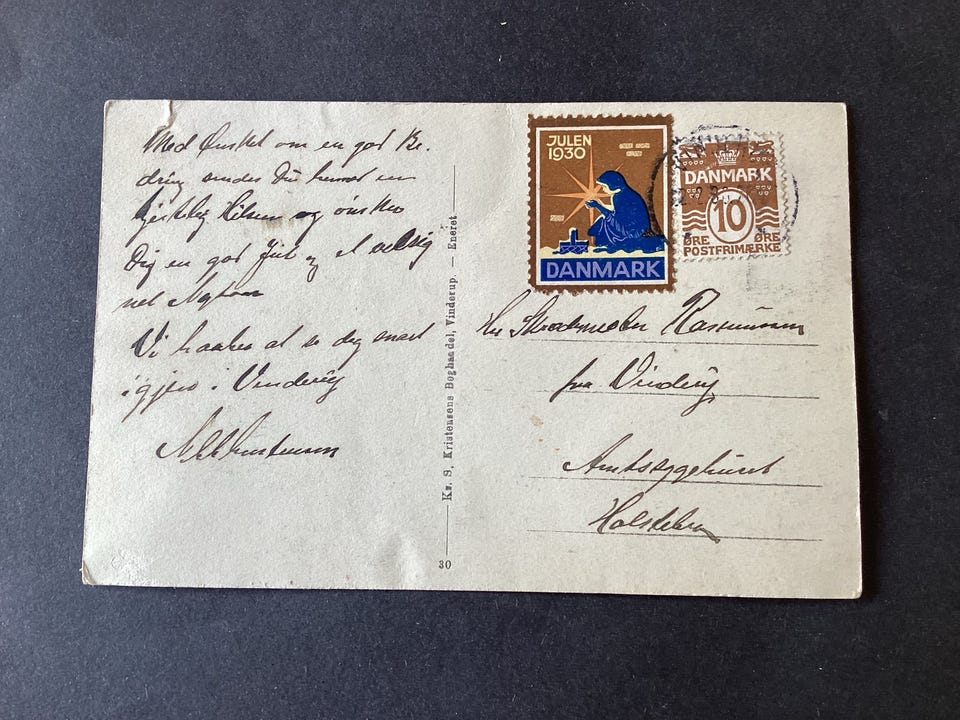 Med Ønsket om en god Be-
dring sendes Du herved en
hjertelig Hilsen og ønskes
Dig en god Jul og et velsig
net Nytaar
Vi haaber at se dig snart
igjen i Vinderup
Kr. S. Kristensens Boghandel, Vinderup. — Eneret
30
JULEN
1930
DANMARK
DANMARK
10
ØRE ØRE
POSTFRIMÆRKE
Hr Rasmussen
fra Vinderup
Amtssygehuset
Holstebro